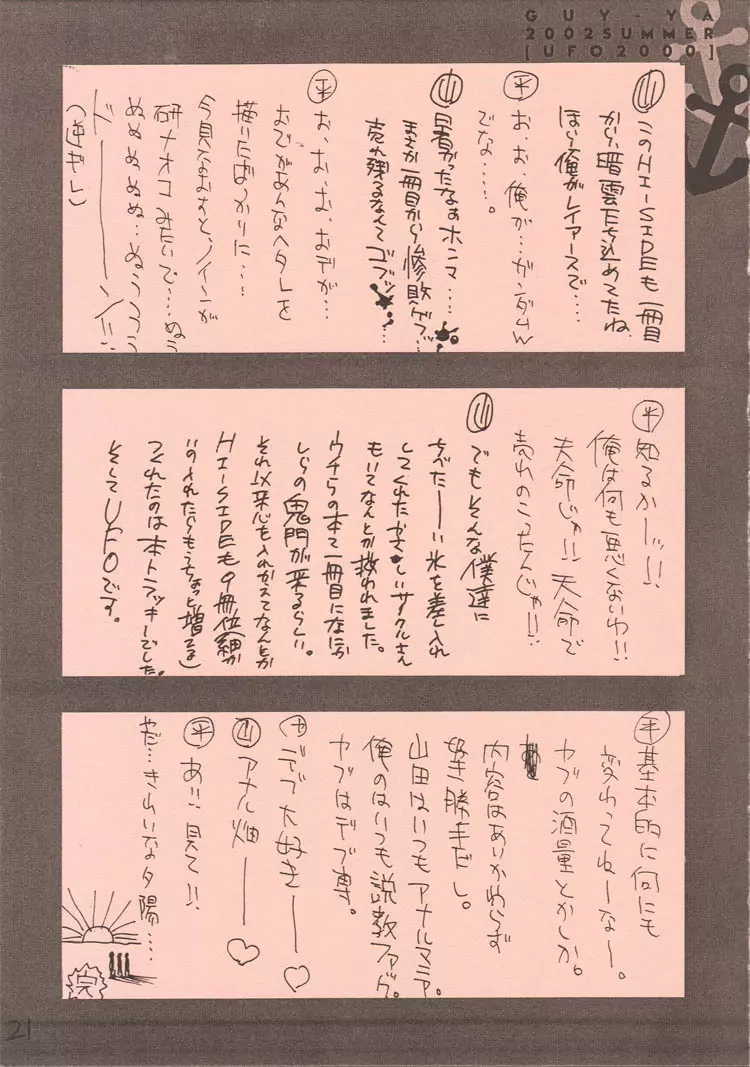 GUY-YA
2002SUMMER
[UFO2000]
山 このHI-SIDEも一冊目
から暗雲たち込めてたね
ほら俺がレイアースで....
平 お、お、俺が…ガンダムW
でな....。
山 早かったなぁホンマ....
まさか一冊目から惨敗ゲフ…
売れ残るなんてゴブッ…
平 お、お、お、おデが…
おでがあんなヘタレを
描いたばっかりに...
今見なおすと、ノインが
研ナオコみたいで....ぬう
ぬぬぬぬぬ…ぬううううう
ド
平 知るかーッ!!
俺は何も悪くないわ!!
天命じゃ!!天命で
売れのこったんじゃ!!
山 でもそんな僕達に
ちべたーい氷を差し入れ
してくれたやさしいサークルさん
もいてなんとか救われました。
ウチらの本て一冊目になにか
しらの鬼門が来るらしい。
それ以来心を入れかえてなんとか
HI-SIDEも9冊位(細か
いの入れたらもうちょっと増てる)
つくれたのは本トラッキーでした。
そしてUFOです。
平 基本的に何にも
変わってねーなー。
ヤブの酒量とかしか。
内容はあいかわらず
好き勝手だし。
山田はいつもアナルマニア。
俺のはいつも説教ファック。
ヤブはデブ専。
ヤ デブ大好きー♡
山 アナル畑ー♡
平 あ!!見て!!
やだ…きれいな夕陽....
完
21